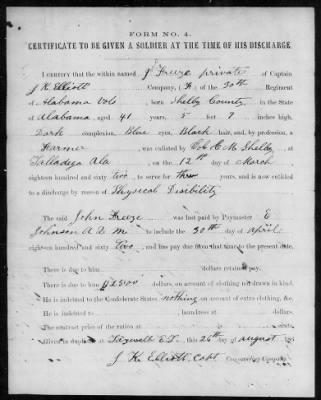 FORM NO. 4.
CERTIFICATE TO BE GIVEN A SOLDIER AT THE TIME OF HIS DISCHARGE.
I CERTIFY that the within named J Freeze private of Captain
J K Elliott Company, (F) of the 30th Regiment
of Alabama Vols, born Shelby County in the State
of Alabama, aged 41 years, 5 feet 9 inches high,
Dark complexion, Blue eyes, Black hair, and, by profession, a
Farmer was enlisted by Col C M Shelby, at
Talladega Ala on the 12th day of March
eighteen hundred and sixty two, to serve three years, and is now entitled
to discharge by reason of Physical Disibility
The said John Freeze was last paid by Paymaster E
Johnson A Q M to include the 30th day of April
eighteen hundred and sixty two, and has pay due from that time to the present date.
There is due to him dollars retained pay.
There is due to him dollars, on account of clothing not drawn in kind.
He is indebted to the Confederate States nothing on account of extra clothing, &c.
He is indebted to laundress at dollars.
The contract price of the ration at is cents.
Given in duplicate at Tazewell E.T., this 26th day of august
J. K. Elliott, Capt Commanding Company.